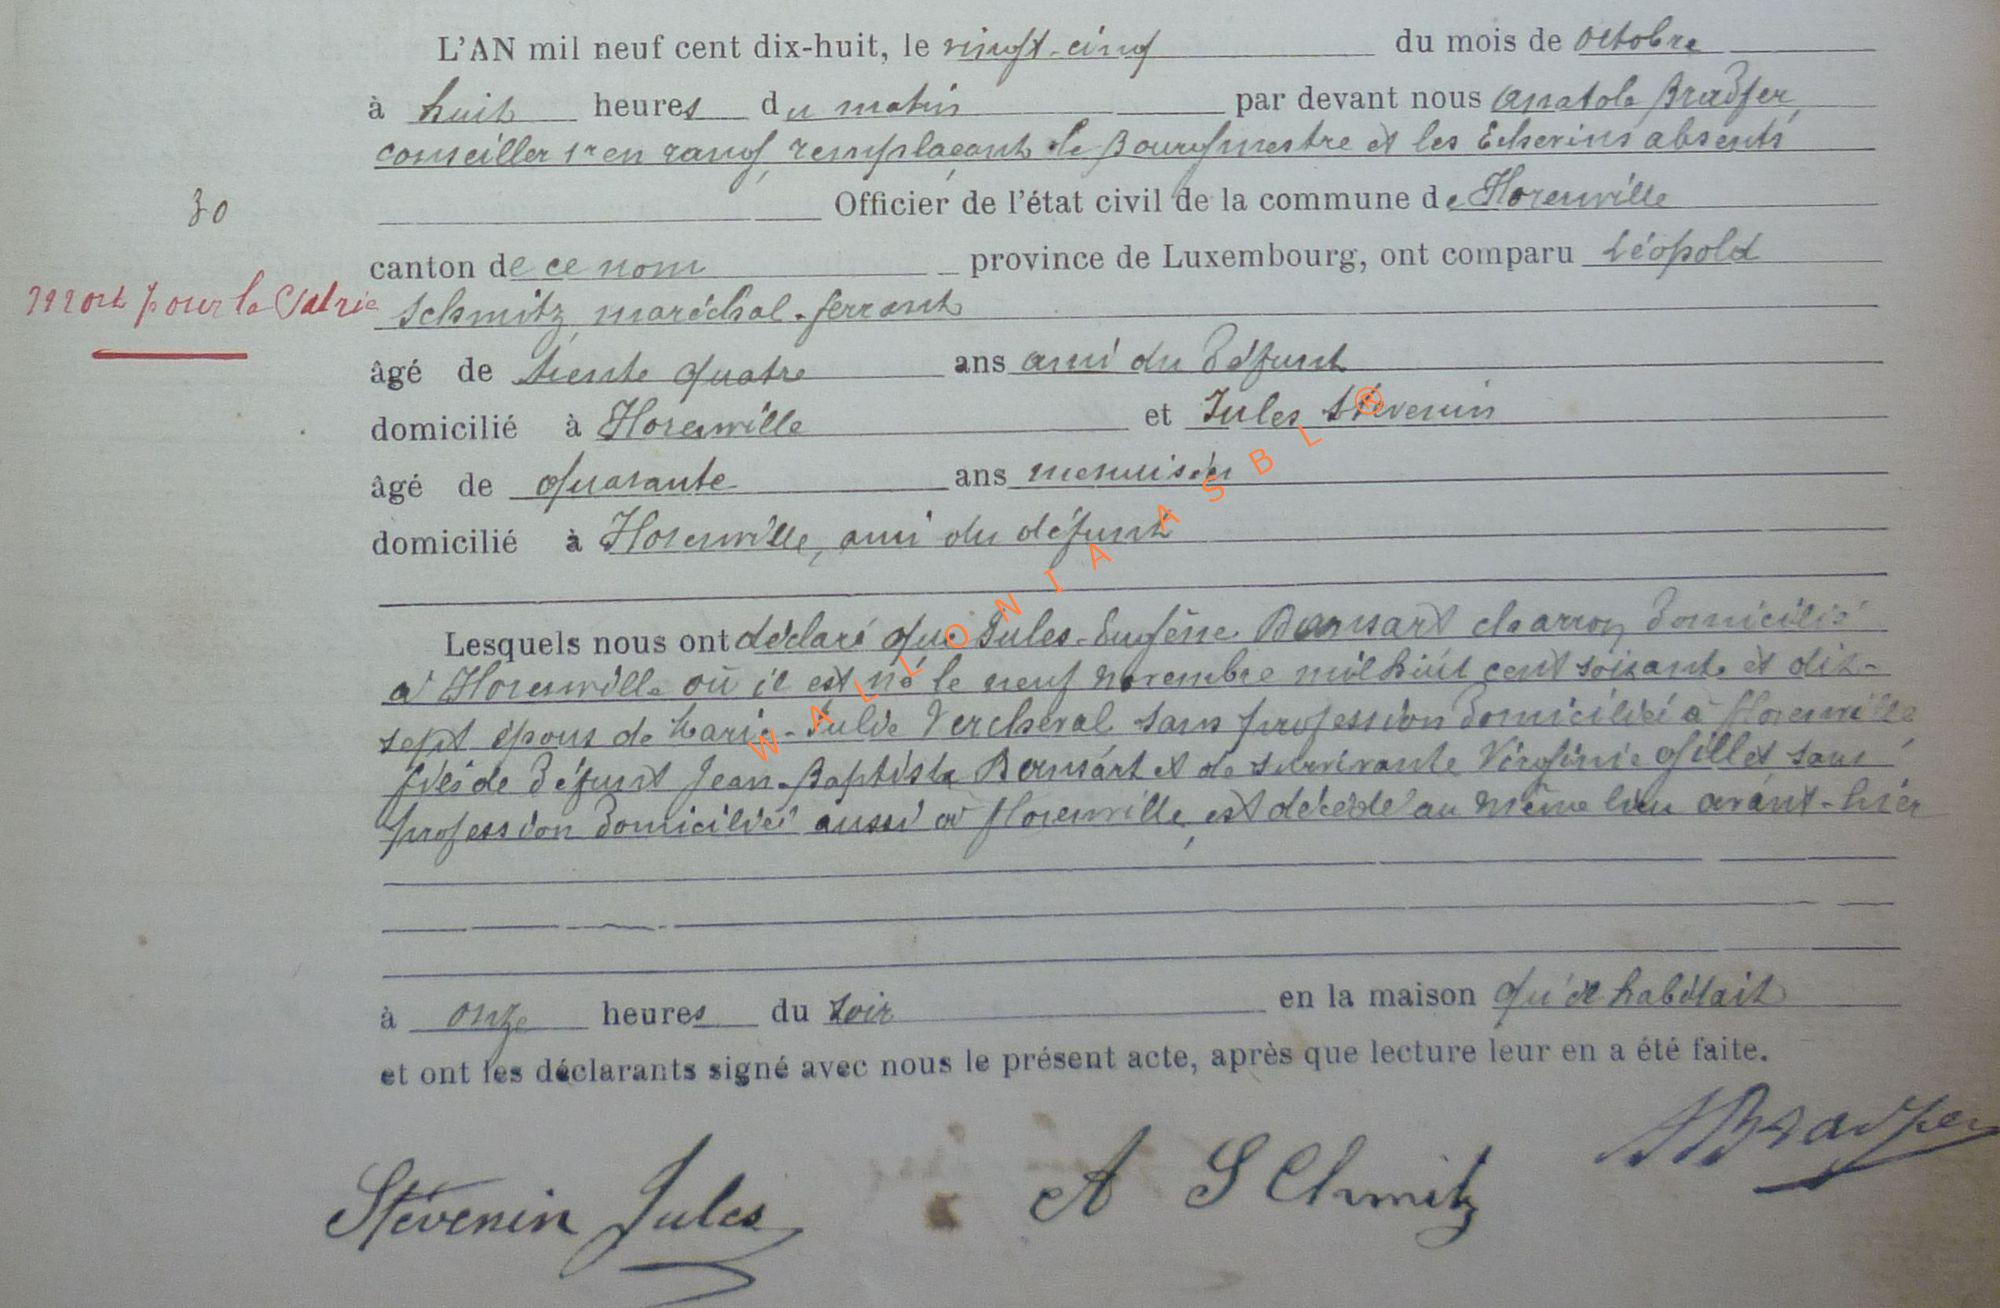 L'AN mil neuf cent dix-huit, le vingt-cinq du mois de octobre
à huit heures du matin par devant nous Anatole Bradfer,
conseiller 1er en rang, remplaçant le Bourgmestre et les Echevins absents
30
Officier de l'état civil de la commune de Florenville
canton de ce nom province de Luxembourg, ont comparu Léopold
Mort pour la Patrie
Schmitz maréchal-ferrant
âgé de trente quatre ans ami du défunt
domicilié à Florenville et Jules Stévenin
âgé de quarante ans menuisier
domicilié à Florenville, ami du défunt
Lesquels nous ont déclaré que Jules-Eugène Bansart charron domicilié
à Florenville où il est né le neuf novembre mil huit cent soixante et dix-
sept époux de Marie-Julie Vercheval sans profession domiciliée à Florenville,
fils de défunt Jean-Baptiste Bansart et de survivante Virginie Gillet sans
profession domiciliée aussi à Florenville, est décédé au même lieu avant-hier
à onze heures du soir en la maison qu'il habitait
et ont les déclarants signé avec nous le présent acte, après que lecture leur en a été faite.
ABradfer
Stévenin Jules A Schmitz
WALLONIA ASBL ®